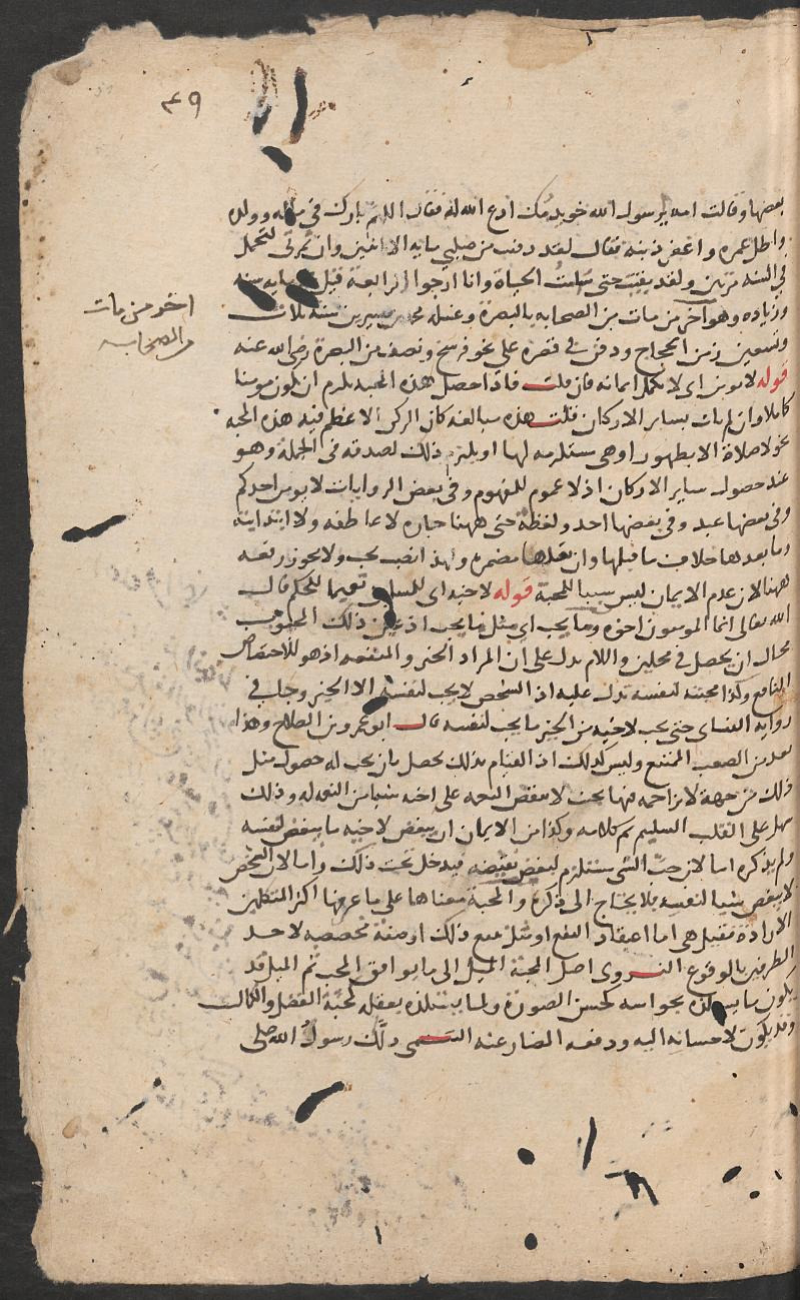 ٤٩
بعضها وقالت امه يرسول الله خويدمك ادع الله له فقال اللهم بارك في ماله وولده
واطل عمره واغفر ذنبه فقال لقد دفنت من صلبي مايه الا اثنين وان ثمرتي لتحمل
في السنه مرتين ولقد بقيت حتى سئمت الحياة وانا ارجوا الرابعة قيل مايه سنه
وزياده وهو آخر من مات من الصحابه بالبصرة وغسله محمد بن سيرين سنه ثلاث
وتسعين زمن الحجاج ودفن في قصره على نحو فرسخ ونصف من البصرة رضي الله عنه
اخر من مات
من الصحابه
قوله لا يومن اي لا يكمل ايمانه فان قلت فاذا حصل هذه المحبه يلزم ان يكون مومنا
كاملا وان لم يات بساير الاركان قلت هذه مبالغه كان الركن الاعظم فيه هذه المحبه
نحو لا صلاة الا بطهور او هي مستلزمه لها او يلتزم ذلك لصدقه في الجملة وهو
عند حصول ساير الاركان اذ لا عموم للمفهوم وفي بعض الروايات لا يومن احدكم
وفي بعضها عبد وفي بعضها احد ولفظة حتى ههنا جاره لا عاطفه ولا ابتداييه
وما بعدها خلاف ما قبلها وان بعدها مضمره ولهذا انصب يحب ولا يجوز رفعه
ههنا لان عدم الايمان ليس سببا للمحبة قوله لاخيه اي للمسلم تعميما للحكم قال
الله تعالى انما المومنون اخوه وما يحب اي مثل ما يحب اذ عين ذلك المحبوب
محال ان يحصل في محلين واللام يدل على ان المراد الخير والمنفعه اذ هو للاختصاص
النافع وكذا محبته لنفسه تدل عليه اذ الشخص لا يحب لنفسه الا الخير وجا في
روايه النساي حتى يحب لاخيه من الخير ما يحب لنفسه قال ابو عمرو بن الصلاح وهذا
يعد من الصعب الممتنع وليس كذلك اذ القيام بذلك يحصل بان يحب له حصول مثل
ذلك من جهة لا يزاحمه فيها بحيث لا ينقص النعمه على اخيه شيا من النعمه له وذلك
سهل على القلب السليم تم كلامه وكذا من الايمان ان يبغض لاخيه ما يبغض لنفسه
ولم يذكره اما لان حب الشي مستلزم لبغض نقيضه فيدخل تحت ذلك واما لان الشخص
لا يبغض شيا لنفسه فلا يحتاج الى ذكره والمحبة معناها على ما عرفها اكثر المتكلمين
الارادة فقيل هي اما اعتقاد النفع او ميل يتبع ذلك او صفة مخصصه لاحد
الطرفين بالوقوع النووي اصل المحبة الميل الى ما يوافق المحب ثم الميل قد
يكون ما يستلذه بحواسه كحسن الصورة ولما يستلذه بعقله كمحبة الفضل والكمال
وقد يكون لاحسانه اليه ودفعه المضار عنه التيمي دلك رسول الله صلى